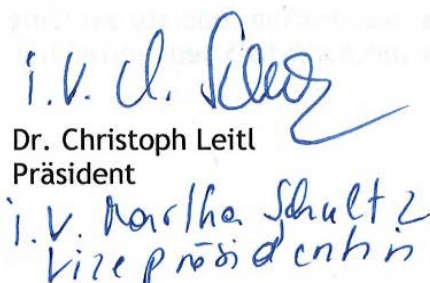 i.V. M. Schultz
Dr. Christoph Leitl
Präsident
i.V. Martha Schultz
Vizepräsidentin